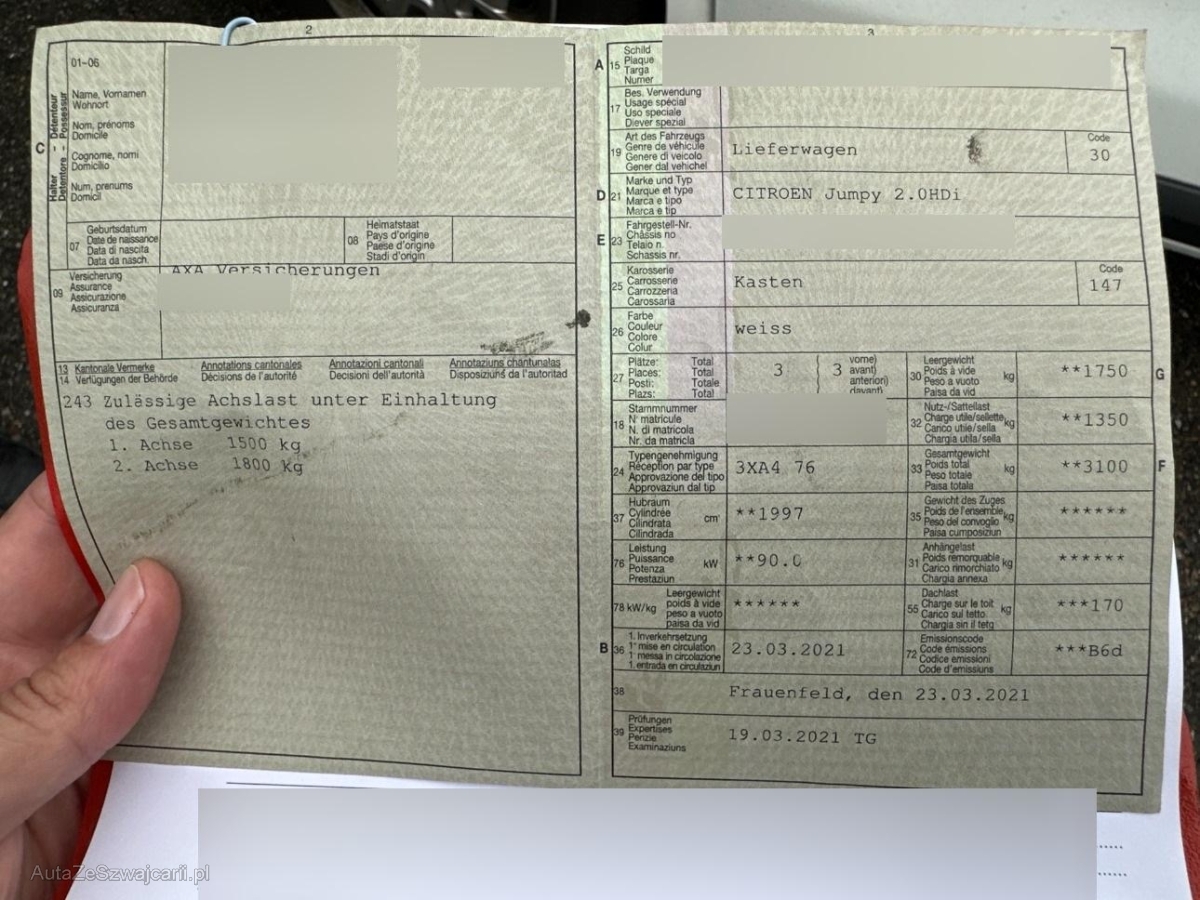 2
01-06
Halter - Détenteur
Detentore - Possessur
C
Name, Vornamen
Wohnort
Nom, prénoms
Domicile
Cognome, nomi
Domicilio
Num, prenums
Domicil
07
Geburtsdatum
Date de naissance
Data di nascita
Data da nasch.
08
Heimatstaat
Pays d'origine
Paese d'origine
Stadi d'origin
09
Versicherung
Assurance
Assicurazione
Assicuranza
AXA Versicherungen
13 Kantonale Vermerke
14 Verfügungen der Behörde
Annotations cantonales
Décisions de l'autorité
Annotazioni cantonali
Decisioni dell'autorità
Annotaziuns chantunalas
Disposiziuns da l'autoritad
243 Zulässige Achslast unter Einhaltung
des Gesamtgewichtes
1. Achse 1500 kg
2. Achse 1800 kg
3
A 15
Schild
Plaque
Targa
Numer
17
Bes. Verwendung
Usage spécial
Uso speciale
Diever spezial
19
Art des Fahrzeugs
Genre de véhicule
Genere di veicolo
Gener dal vehichel
Lieferwagen
Code
30
D 21
Marke und Typ
Marque et type
Marca e tipo
Marca e tip
CITROEN Jumpy 2.0HDi
E 23
Fahrgestell-Nr.
Châssis no
Telaio n.
Schassis nr.
25
Karosserie
Carrosserie
Carrozzeria
Carossaria
Kasten
Code
147
26
Farbe
Couleur
Colore
Colur
weiss
27
Plätze: Total
Places: Total
Posti: Totale
Plazs: Total
3
3
vorne)
avant)
anteriori)
davant)
30
Leergewicht
Poids à vide
Peso a vuoto
Paisa da vid
kg
**1750
G
18
Stammnummer
N° matricule
N. di matricola
Nr. da matricla
32
Nutz-/Sattellast
Charge utile/sellette
Carico utile/sella
Chargia utila/sella
kg
**1350
24
Typengenehmigung
Réception par type
Approvazione del tipo
Approvaziun dal tip
3XA4 76
33
Gesamtgewicht
Poids total
Peso totale
Paisa totala
kg
**3100
F
37
Hubraum
Cylindrée
Cilindrata
Cilindrada
cm³
**1997
35
Gewicht des Zuges
Poids de l'ensemble
Peso del convoglio
Paisa cumposiziun
kg
******
76
Leistung
Puissance
Potenza
Prestaziun
kW
**90.0
31
Anhängelast
Poids remorquable
Carico rimorchiato
Chargia annexa
kg
******
78 kW/kg
Leergewicht
poids à vide
peso a vuoto
paisa da vid
******
55
Dachlast
Charge sur le toit
Carico sul tetto
Chargia sin il tetg
kg
***170
B 36
1. Inverkehrsetzung
1re mise en circulation
1a messa in circolazione
1. entrada en circulaziun
23.03.2021
72
Emissionscode
Code émissions
Codice emissioni
Code d'emissiuns
***B6d
38
Frauenfeld, den 23.03.2021
39
Prüfungen
Expertises
Perizie
Examinaziuns
19.03.2021 TG
AutaZeSzwajcarii.pl